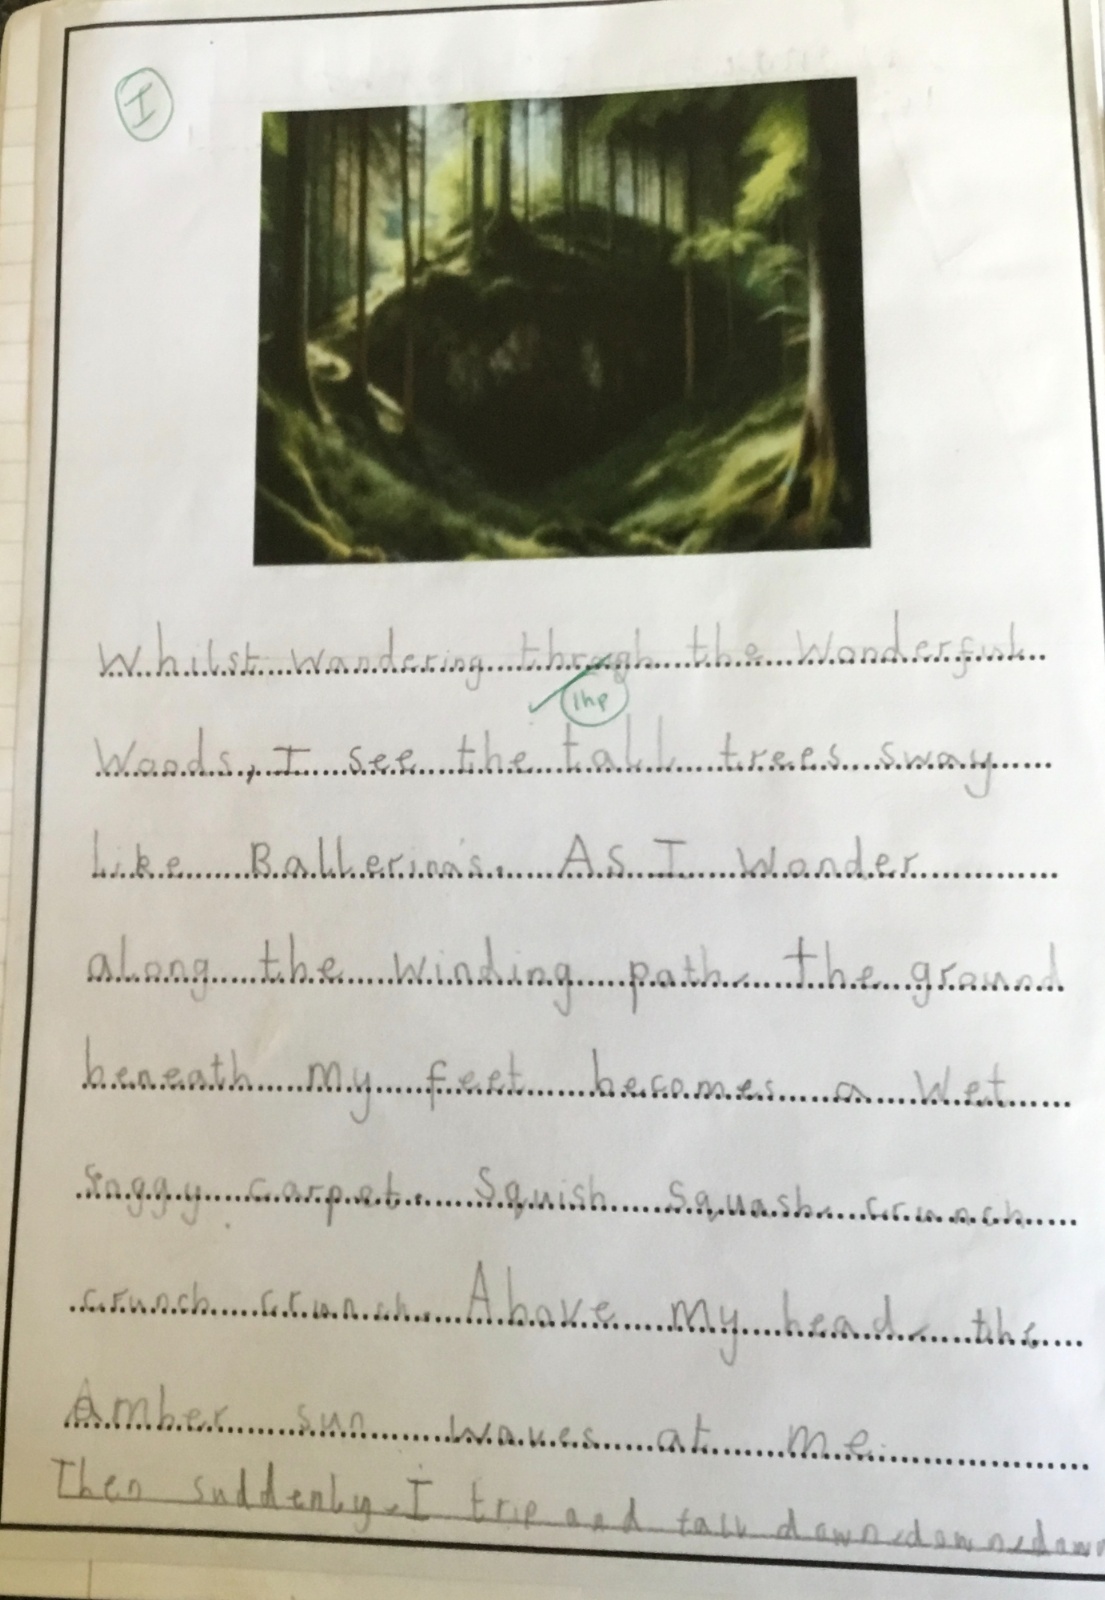 I
Whilst wandering throgh the Wonderful
1hp
Woods, I see the tall trees sway
Like Ballerina's. As I Wonder
along the winding path, the ground
beneath my feet becomes a Wet
Soggy carpet. Squish Squash, crunch
crunch crunch. Above my head, the
Amber sun waves at me.
Then suddenly, I trip and fall down, down, down